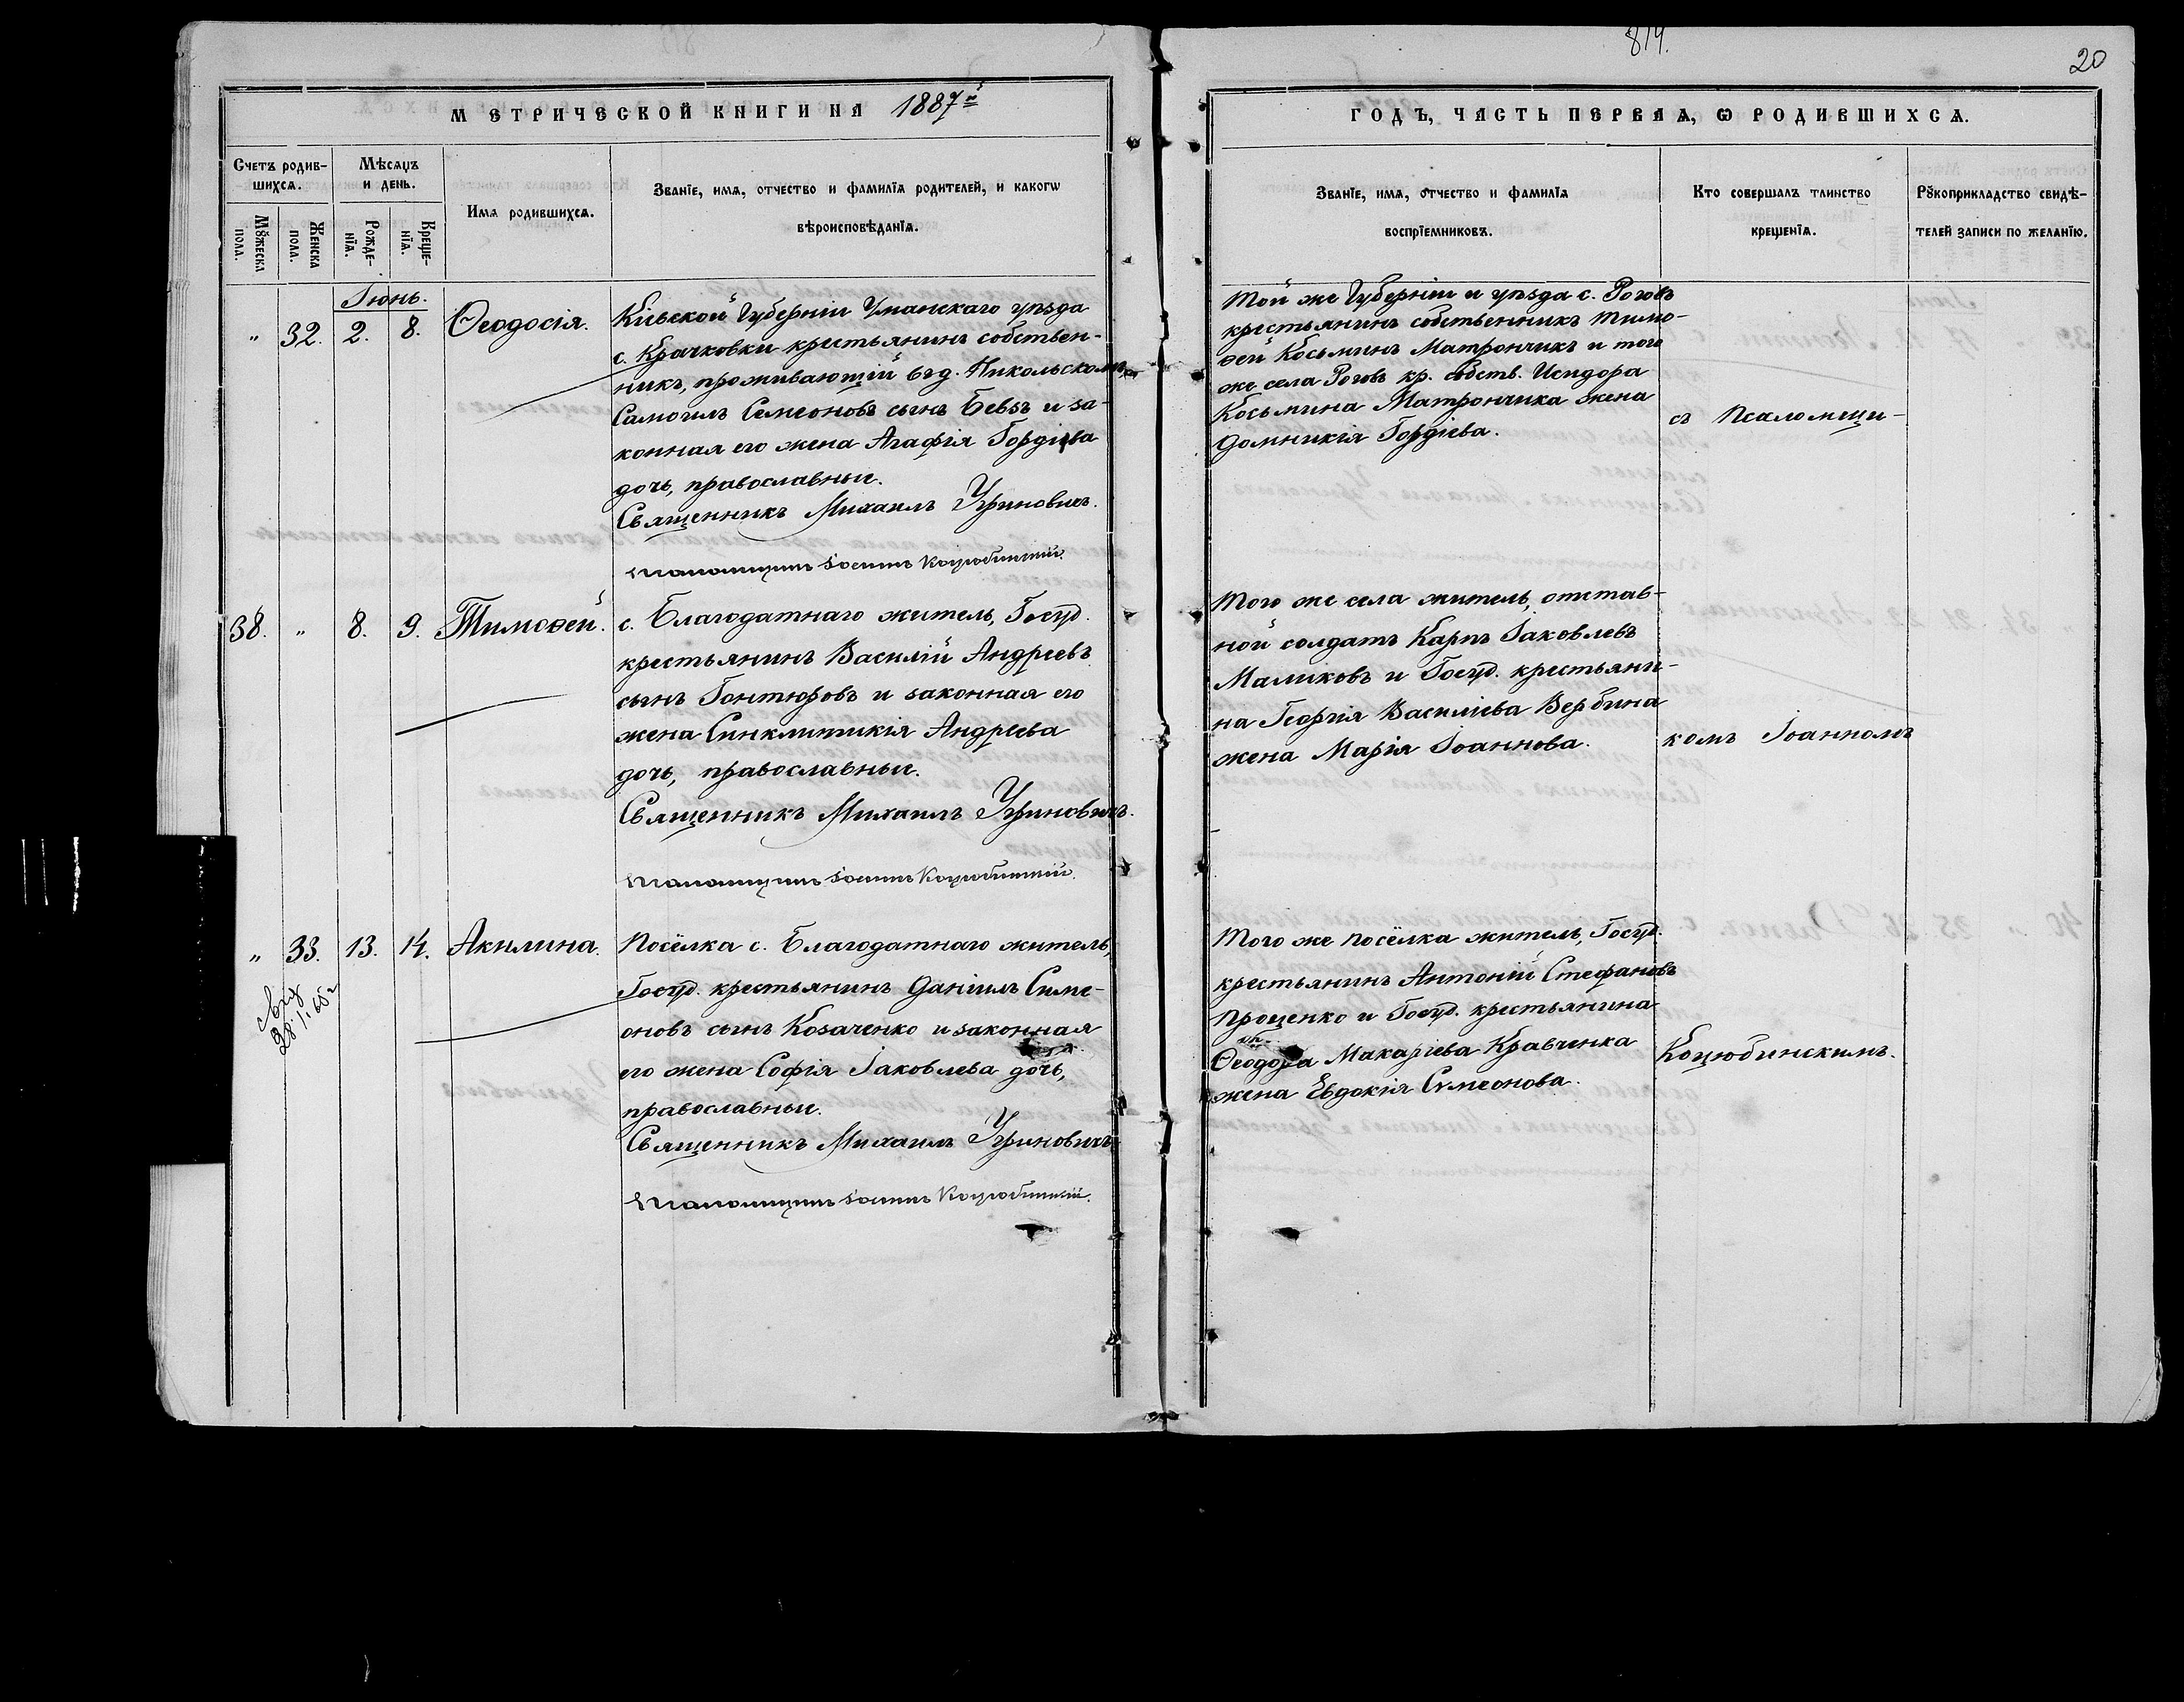 814.
20
МЕТРИЧЕСКОЙ КНИГИ НА 1887й
ГОДЪ, ЧАСТЬ ПЕРВАѦ, Ѡ РОДИВШИХСѦ.
Счетъ родив-
шихсѧ.
Мѣсѧцъ
и день.
Мꙋжеска
пола.
Женска
пола.
Рожде-
нїѧ.
Креще-
нїѧ.
Имѧ родившихсѧ.
Званїе, имѧ, отчество и фамилїѧ родителей, и какогѡ
вѣроисповѣданїѧ.
Званїе, имѧ, отчество и фамилїѧ
воспрїемниковъ.
Кто совершалъ таинство
крещенїѧ.
Рꙋкоприкладство свидѣ-
телей записи по желанїю.
Іюнь.
" 32. 2. 8. Ѳеодосія.
Кіевской Губерніи Уманскаго уѣзда
с. Крачковки крестьянинъ собствен-
никъ, проживающій въ д. Никольскомъ
Самоилъ Симеоновъ сынъ Бевзъ и за-
конная его жена Агафія Гордіева
дочь, православныи.
Священникъ Михаилъ Угриновичъ.
Псаломщикъ Іоаннъ Коцюбинскій.
Той же Губерніи и уѣзда с. Роговъ
крестьянинъ собственникъ Тимо-
ѳей Косьминъ Матрончикъ и того
же села Роговъ кр. собств. Исидора
Косьмина Матрончика жена
Домникія Гордіева.
съ Псаломщи-
38. " 8. 9. Тимоѳей.
с. Благодатнаго житель, Госуд.
крестьянинъ Василій Андреевъ
сынъ Гонтюровъ и законная его
жена Синклитикія Андреева
дочь, православныи.
Священникъ Михаилъ Угриновичъ.
Псаломщикъ Іоаннъ Коцюбинскій.
Того же села житель, отстав-
ной солдатъ Карпъ Іаковлевъ
Маликовъ и Госуд. крестьяни-
на Георгія Василіева Вербина
жена Марія Іоаннова.
комъ Іоанномъ
" 33. 13. 14. Акилина.
28.1.65г
Посёлка с. Благодатнаго житель,
Госуд. крестьянинъ Даніилъ Симе-
оновъ сынъ Козаченко и законная
его жена Софія Іаковлева дочь,
православныи.
Священникъ Михаилъ Угриновичъ
Псаломщикъ Іоаннъ Коцюбинскій.
Того же посёлка житель, Госуд.
крестьянинъ Антоній Стефановъ
Проценко и Госуд. крестьянина
Ѳеодора Макаріева Кравченка
жена Евдокія Симеонова.
Коцюбинскимъ.